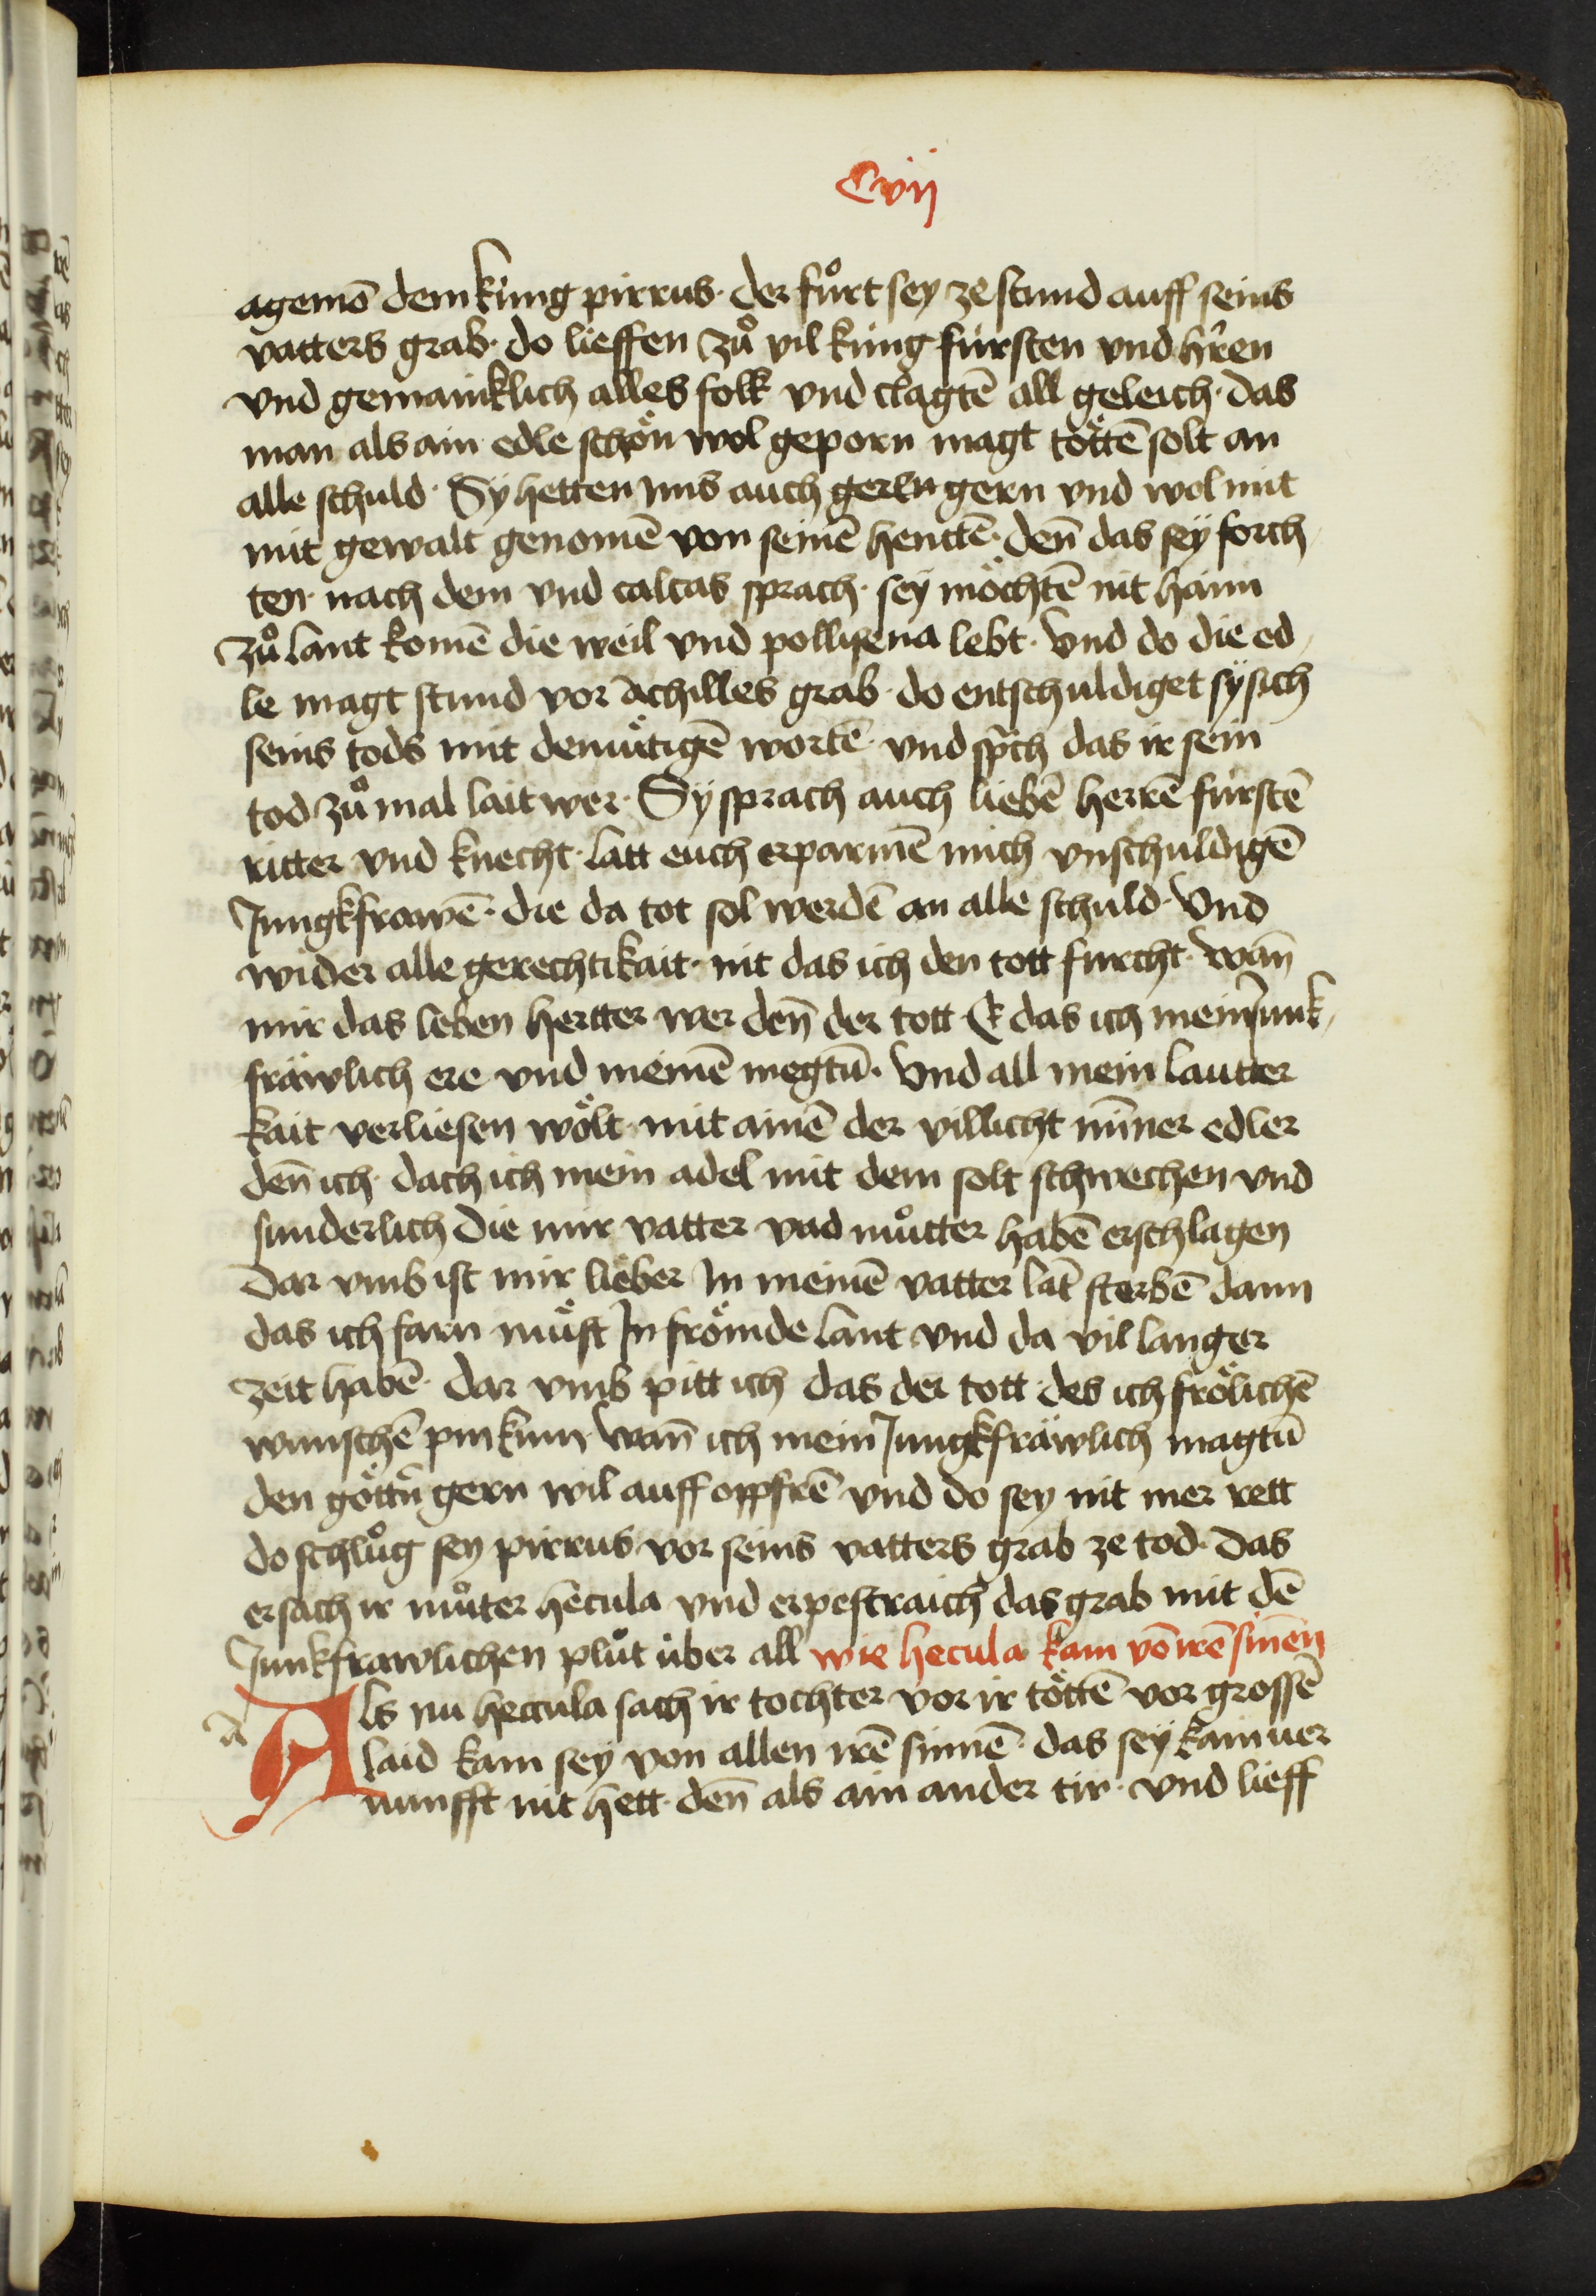 Cvij
agemō dem küng pirrus · der fůrt sey ze stund auff seins
vatters grab · do lieffen zů vil küng fürsten vnd hr̄en
vnd gemainklich alles folk vnd clagtē all geleich · das
man als ain edle schön wol geporn magt töttē solt an
alle schuld · Sy hetten ims auch gern vnd wol mit
mit gewalt genomē von seinē henttē · den̄ das sey forch
ten · nach dem vnd calcas sprach · sey möchtē nit haim
zů lant komē die weil vnd pollixena lebt · Vnd do die ed
le magt stund vor achilles grab · do entschuldiget sy sich
seins tods mit demütigē wortē · vnd sp̄ch das ir sein
tod zů mal lait wer · Sy sprach auch liebē herrē fürstē
ritter vnd knecht · latt euch erparmē mich vnschuldigē
Jungkfrawē · die da tot sol werdē an alle schuld · Vnd
wider alle gerechtikait · nit das ich den tott furcht · wan̄
mir das leben hertter wer den̄ der tott & das ich mein Junk
fräwlich ere vnd meinē megtū · Vnd all mein lautter
kait verliesen wölt · mit ainē der villicht mīner edler
den̄ ich · dach ich mein adel mit dem solt schwechen vnd
sunderlich die mir vatter vnd můtter habē erschlagen
Dar vmb ist mir lieber In meinē vatter lāt sterbē dann
das ich farn müst In frömde lant vnd da vil langer
zeit habē · dar vmb pitt ich das der tott · des ich frölichē
wünschē pin kum · wan̄ ich mein Jungkfräwlich magtū
den göttn̄ gern wil auff oppfrē · vnd do sey nit mer rett
do schlůg sey pirrus vor seins vatters grab ze tod · das
ersach ir můter hecula vnd erpestraich das grab mit dē
Junkfrawlichen plůt über all wie hecula kam vō irē sinen
a
Als nu heccula sach ir tochter vor ir töttē vor grossē
laid kam sey von allen irē sinnē · das sey kain ver
nunfft nit hett · den̄ als ain ander tir · vnd lieff